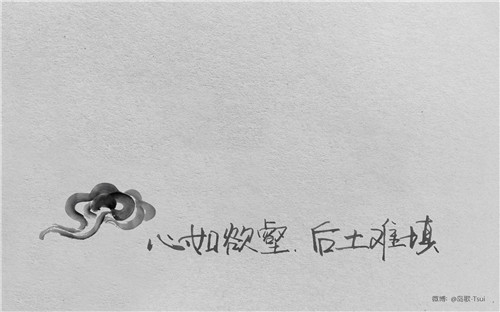 心如欲壑.后土难填
微博: @岛歌·Tsui